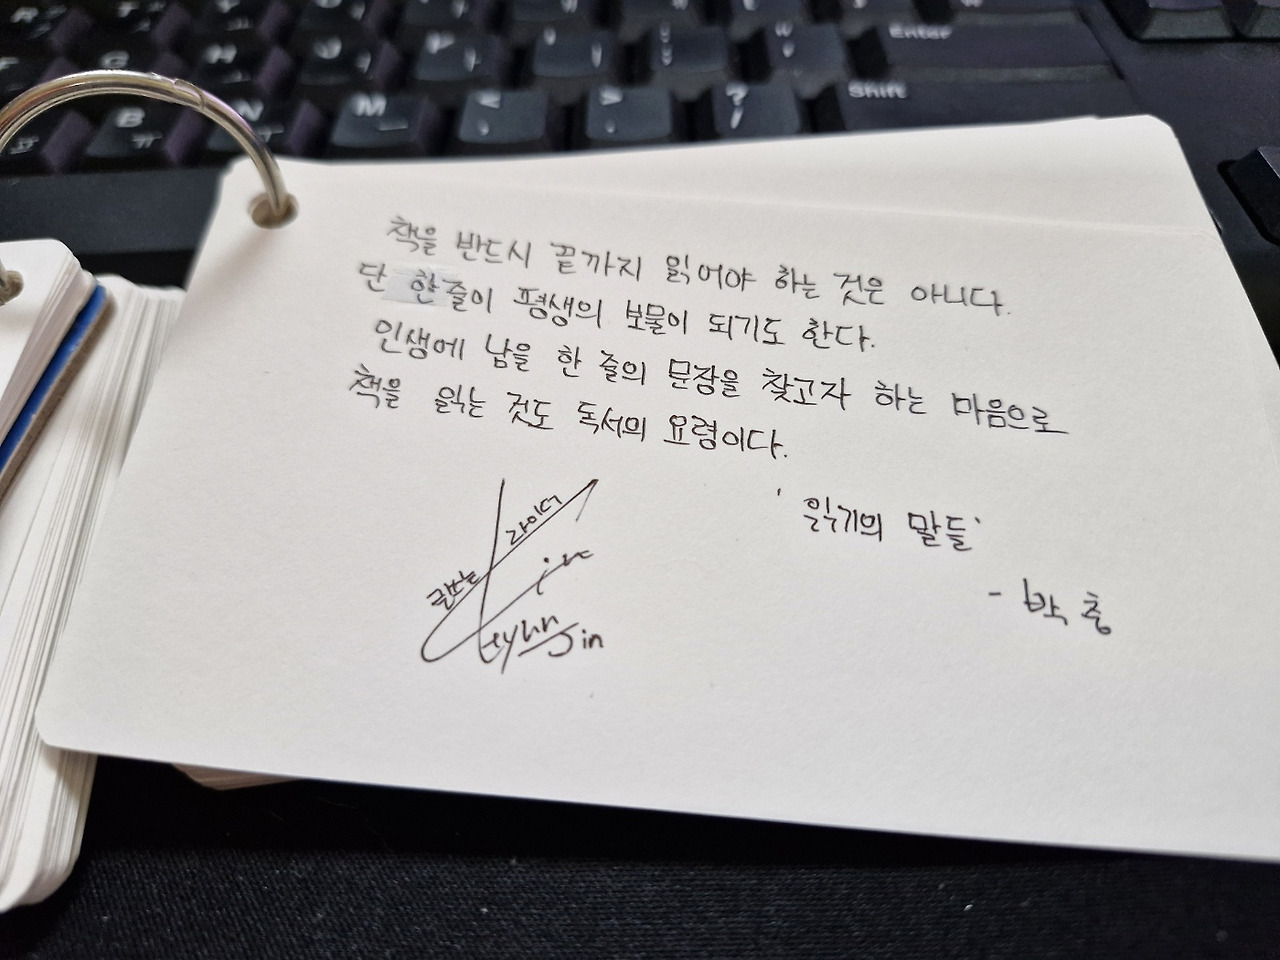 Enter
M
Shift
B ㅠ
N
책을 반드시 끝까지 읽어야 하는 것은 아니다.
단 한줄이 평생의 보물이 되기도 한다.
인생에 남을 한 줄의 문장을 찾고자 하는 마음으로
책을 읽는 것도 독서의 요령이다.
글쓰는 라이더
'읽기의 말들'
- 박총